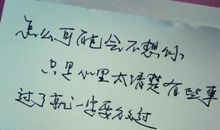 怎么可能会不想你
只是心里太清楚有些事
过了就一定要分过